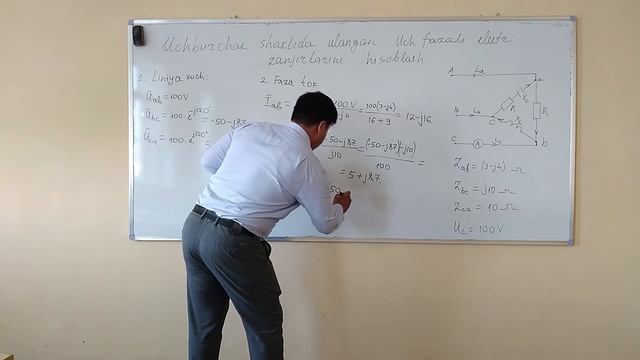 Uchburchak shaklida ulangan Uch fazali elektr
zanjirlarini hisoblash.
1. Liniya kuch:
U̇ab = 100V
U̇bc = 100 · e^j120° = -50-j87
U̇ca = 100 · e^j120° =
2. Faza tok
İab =
100V
100(3-j4)
16+9
= 12-j16
-50-j87
j10
= (-50-j87)(-j10)
100
=
= 5+j8,7.
50
A
B
C
A
a
b
R
R
Zab = (3-j4) Ω
Zbc = j10 Ω
Zca = 10 Ω
UL = 100V